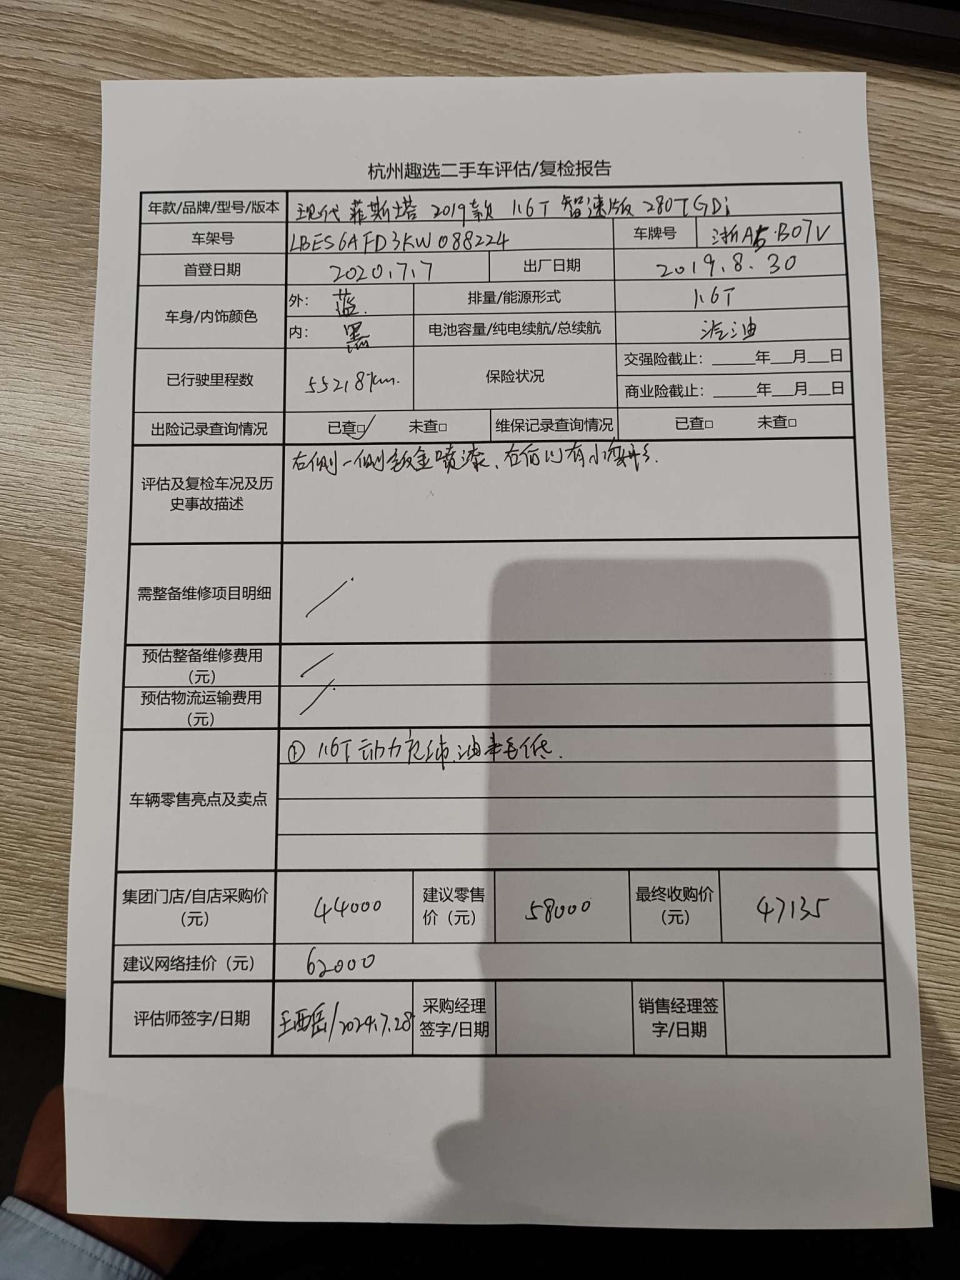 杭州趣选二手车评估/复检报告
年款/品牌/型号/版本 现代 菲斯塔 2019款 1.6T 智速版 280TGDi
车架号 LBES6AFD3KW088224 车牌号 浙A5·B07V
首登日期 2020.7.7 出厂日期 2019.8.30
车身/内饰颜色 外: 蓝. 排量/能源形式 1.6T
内: 黑 电池容量/纯电续航/总续航 汽油
已行驶里程数 55218km. 保险状况 交强险截止: ______年___月___日
商业险截止: ______年___月___日
出险记录查询情况 已查□ 未查□ 维保记录查询情况 已查□ 未查□
评估及复检车况及历史事故描述 右侧一侧钣金喷漆、右后门有小变形.
需整备维修项目明细
预估整备维修费用(元)
预估物流运输费用(元)
车辆零售亮点及卖点 ① 1.6T 动力充沛.油耗低.
集团门店/自店采购价(元) 44000 建议零售价(元) 58000 最终收购价(元) 47135
建议网络挂价(元) 62000
评估师签字/日期 /2024.7.28 采购经理签字/日期 销售经理签字/日期